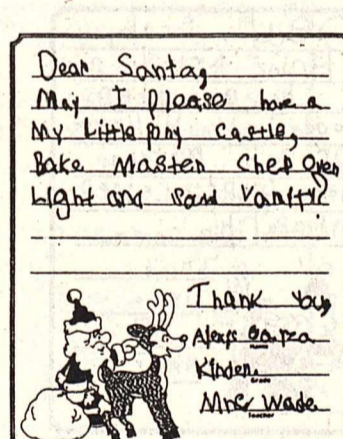 Dear Santa,
May I please have a
My Little pony castle,
Bake Master Chef Oven
Light and Sand Vanity.
Thank You,
Alexys Garza
Name
Kinder.
Grade
Mrs. Wade
Teacher